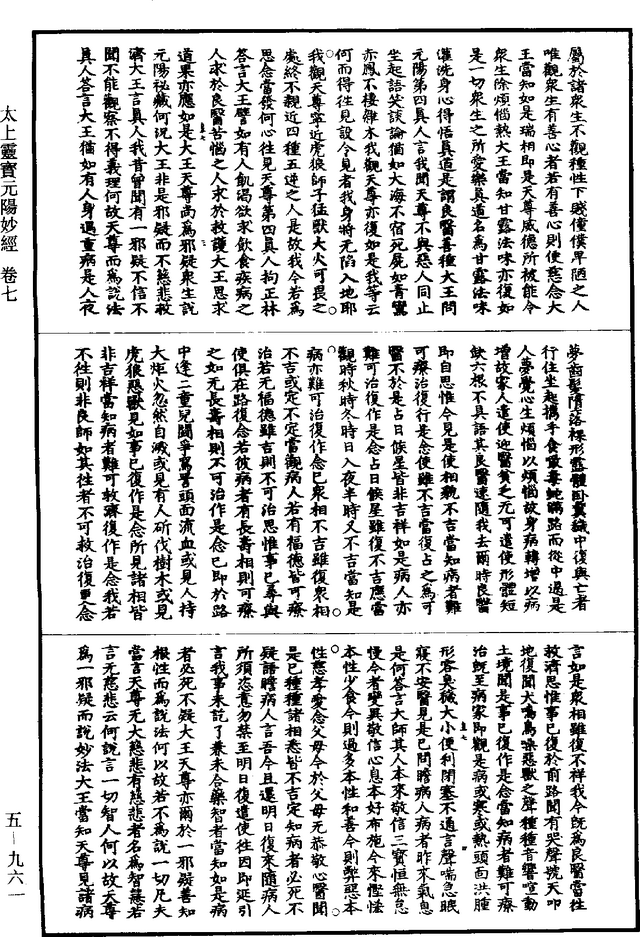 屬於諸衆生不觀種性下賤僮僕卑陋之人
唯觀衆生有善心者若有善心則便慈念大
王當知如是瑞相即是天尊威德所被能令
衆生除煩惱熱大王當知甘露法味亦復如
是一切衆生之所愛樂真道名為甘露法味
灌洗身心得悟真道是謂良醫善種大王問
元陽第四真人言我聞天尊不與惡人同止
坐起語笑談論猶如大海不宿死屍如青鸞
亦鳳不棲雜木我觀天尊亦復如是我等云
何而得往見設令見者我身將無陷入地耶
我觀天尊寧近虎狼師子猛獸大火可畏之
處終不親近四種五逆之人是故我今若為
思念當發何心往見天尊第四真人拘正林
答言大王譬如有人飢渴欲求飲食疾病之
人求於良醫苦惱之人求於救護大王思求
道果亦應如是大王天尊尚為邪疑衆生說
元陽祕藏何況大王非是邪疑而不慈悲救
濟大王言真人我昔曾聞有一邪疑不信不
聞不能觀察不得義理何故天尊而為說法
真人答言大王猶如有人身遇重病是人夜
夢剪髮墮落裸形露體卧糞穢中復與亡者
行住坐起攜手食噉毒蛇滿路而從中過是
人夢覺心生煩惱以煩惱故身病轉增以病
增故家人遣使迎醫貧乏无可遣使形體短
缺六根不具語其良醫速隨我去爾時良醫
即自思惟今見是使相貌不吉當知病者難
可療治復行是念使雖不吉當復占之為可
醫不於是占日候星皆非吉祥如是病人亦
難可治復作是念占日候星雖復不吉應當
觀時秋時冬時日入夜半時又不吉當知是
病亦難可治復作念已衆相不吉雖復衆相
不吉或定不定當觀病人若有福德皆可療
治若无福德雖吉則不可治思惟事已尋與
使俱在路復念若彼病者有長壽相則可療
之如无長壽相則不可治作是念已即於路
中逢二童兒鬬爭罵詈頭面流血或見人持
大炬火忽然自滅或見有人斫伐樹木或見
虎狼惡獸見如事已復作是念所見諸相皆
非吉祥當知病者難可救濟復作是念我若
不往則非良師如其往者不可救治復更念
言如是衆相雖復不祥我今既為良醫當往
救濟思惟事已復於前路聞有哭聲號天叩
地復聞犬鳴鳥噪惡獸之聲種種音響喧動
土境聞是事已復作是念當知病者難可療
治既至病家即觀是病或寒或熱頭面洪腫
形容臭穢大小便利閉塞不通言聲喘急眠
寢不安醫見是已問瞻病人病者昨來氣息
是何答言大師其人本來敬信三寶恒無怠
慢今者變異敬信心息本好布施今來慳悋
本性少食今則過多本性和善今則弊惡本
性慈孝愛念父母今於父母无恭敬心醫聞
是已種種諸相悉皆不吉定知病者必死不
疑語瞻病人言吾今且還明日復來隨病人
所須恣意勿禁至明日復遣使往因即延引
言我事未訖了兼未合藥智者當知如是病
者必死不疑大王天尊亦爾於一邪疑善知
根性而為說法何以故若不為說一切凡夫
當言天尊无大慈悲有慈悲者名為智慧若
言无慈悲云何說言一切智人何以故天尊
為一邪疑而說妙法大王當知天尊見諸病
太上靈寶元陽妙經 卷七
五-九六一